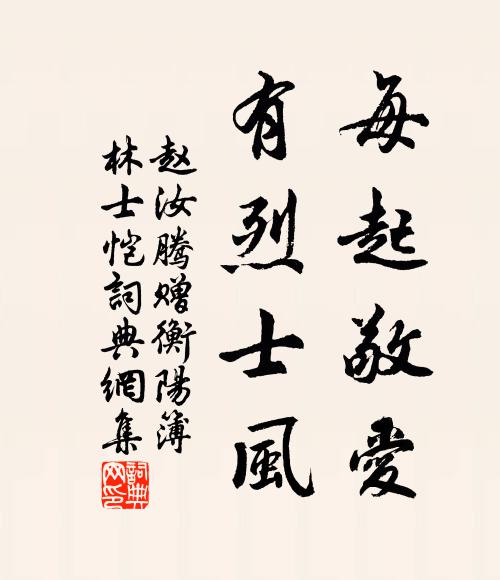 每起敬愛
有烈士風
赵汝腾赠衡陽簿
林士恺詞典網集
詞典網印